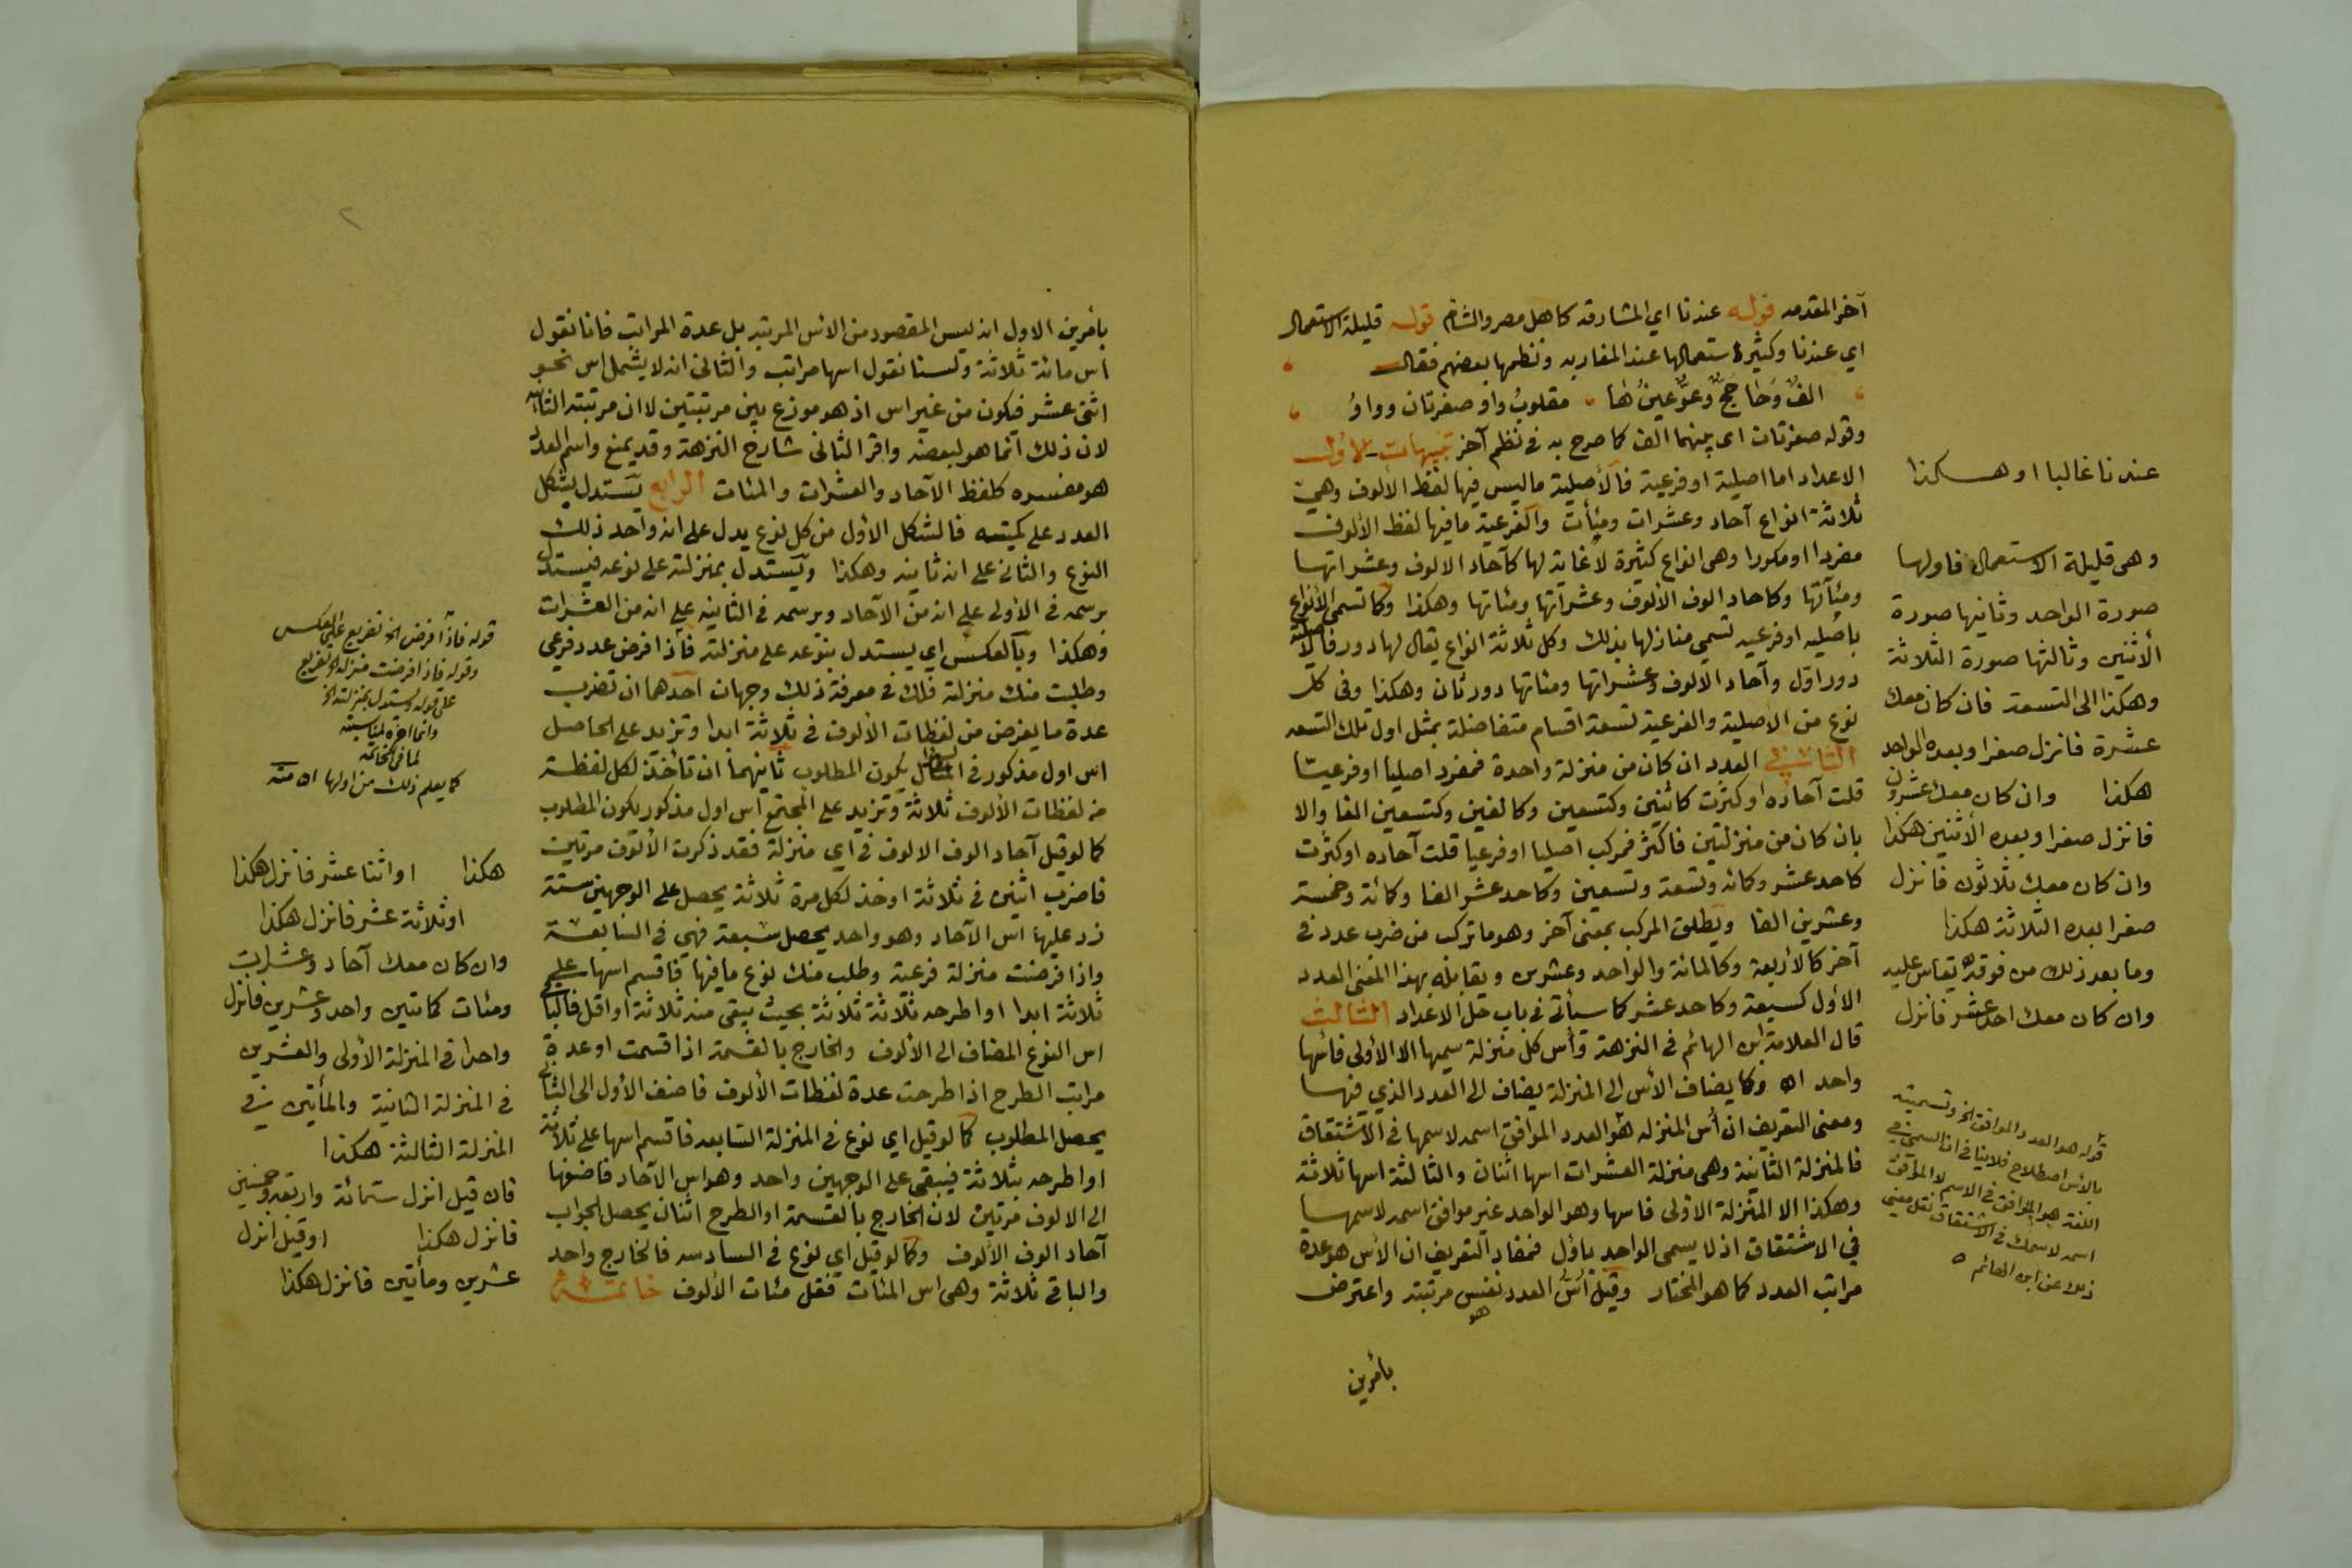 آخر المقدمه قوله عندنا اي المشارقه كاهل مصر والشام قوله قليلة الاستعمال
اي عندنا وكثير استعمالها عند المغاربه ونظمها بعضهم فقال
الف وحا حج وعو عين ها مقلوب واو صفرتان وواو
وقوله صفرتان اي بينهما الف كما صرح به في نظم آخر تنبيهات الاول
الاعداد اما اصلية او فرعية فالأصلية ما ليس فيها لفظ الألوف وهي
ثلاثة انواع آحاد وعشرات ومئات والفرعية ما فيها لفظ الالوف
مفردا او مكررا وهي انواع كثيرة لا غاية لها كآحاد الالوف وعشراتها
ومئاتها وكاحاد الوف الألوف وعشراتها ومئاتها وهكذا وكما تسمى الأنواع
باصليه او فرعيه تسمى منازلها بذلك وكل ثلاثة انواع يقال لها دور فالأصلية
دور اول وآحاد الالوف وعشراتها ومئاتها دور ثان وهكذا وفي كل
نوع من الاصلية والفرعية تسعة اقسام متفاضلة بمثل اول تلك التسعه
الثاني العدد ان كان من منزلة واحدة فمفرد اصليا او فرعيا
قلت آحاده او كثرت كاثنين وكتسعين وكالفين وكتسعين الفا والا
بان كان من منزلتين فاكثر فمركب اصليا او فرعيا قلت آحاده او كثرت
كاحد عشر وكمائة وتسعة وتسعين وكاحد عشر الفا وكمائة وخمسة
وعشرين الفا ويطلق المركب بمعنى آخر وهو ما تركب من ضرب عدد في
آخر كالاربعة وكالمائة والواحد وعشرين ويقابله بهذا المعنى العدد
الأول كسبعة وكاحد عشر كما سيأتي في باب حل الاعداد الثالث
قال العلامة ابن الهائم في النزهة وأس كل منزلة سميها الا الأولى فأسها
واحد اه وكما يضاف الاس الى المنزلة يضاف الى العدد الذي فيها
ومعنى التعريف ان أس المنزله هو العدد الموافق اسمه لاسمها في الاشتقاق
فالمنزلة الثانية وهي منزلة العشرات اسها اثنان والثالثة اسها ثلاثة
وهكذا الا المنزلة الاولى فاسها وهو الواحد غير موافق اسمه لاسمها
في الاشتقاق اذ لا يسمى الواحد باول فمفاد التعريف ان الأس هو عدة
مراتب العدد كما هو المختار وقيل أس العدد نفس مرتبته واعترض
هو
بأمرين
عندنا غالبا او هكذا
وهي قليلة الاستعمال فاولها
صورة الواحد وثانيها صورة
الأثنين وثالثها صورة الثلاثة
وهكذا الى التسعة فان كان معك
عشرة فانزل صفرا وبعده الواحد
هكذا وان كان معك عشرون
فانزل صفرا وبعده الأثنين هكذا
وان كان معك ثلاثون فانزل
صفرا بعده الثلاثة هكذا
وما بعد ذلك من فوقه يقاس عليه
وان كان معك احد عشر فانزل
قوله هو العدد الموافق الخ وتسميته
بالأس اصطلاح فلا ينافي ان السمي في
اللغة هو الموافق في الاسم لا الموافق
اسمه لاسمك في الاشتقاق نقل معنى
ذلك عن ابن الهائم
بأمرين الاول انه ليس المقصود من الاس المرتبة بل عدة المراتب فانا نقول
اس مائة ثلاثة ولسنا نقول اسها مراتب والثاني انه لا يشمل اس نحو
اثنى عشر فيكون من غير اس اذ هو موزع بين مرتبتين لا ان مرتبته الثانية
لان ذلك انما هو لبعضه واقر الثاني شارح النزهة وقد يمنع واسم العدد
هو مفسره كلفظ الآحاد والعشرات والمئات الرابع يستدل بشكل
العدد على كميته فالشكل الأول من كل نوع يدل على انه واحد ذلك
النوع والثاني على انه ثانيه وهكذا ويستدل بمنزلته على نوعه فيستدل
برسمه في الأولى على انه من الآحاد وبرسمه في الثانيه على انه من العشرات
وهكذا وبالعكس اي يستدل بنوعه على منزلته فأذا افرض عدد فرعي
وطلبت منك منزلة فلك في معرفة ذلك وجهان احدهما ان تضرب
عدة ما يفرض من لفظات الألوف في ثلاثة ابدا وتزيد على الحاصل
اس اول مذكور في السؤال يكون المطلوب ثانيهما ان تأخذ لكل لفظة
من لفظات الألوف ثلاثة وتزيد على المجتمع اس اول مذكور يكون المطلوب
كما لو قيل آحاد الوف الالوف في اي منزلة فقد ذكرت الألوف مرتين
فاضرب اثنين في ثلاثة او خذ لكل مرة ثلاثة يحصل على الوجهين ستة
زد عليها اس الآحاد وهو واحد يحصل سبعة فهي في السابعة
واذا فرضت منزلة فرعية وطلب منك نوع ما فيها فاقسم اسها على
ثلاثة ابدا او اطرحه ثلاثة ثلاثة بحيث يبقى منه ثلاثة او اقل فالباقي
اس النوع المضاف الى الألوف والخارج بالقسمة اذا قسمت او عدة
مراتب الطرح اذا طرحت عدة لفظات الألوف فاضف الأول الى الثاني
يحصل المطلوب كما لو قيل اي نوع في المنزلة السابعه فاقسم اسها على ثلاثة
او اطرحه بثلاثة فيبقى على الوجهين واحد وهو اس الآحاد فاضفها
الى الالوف مرتين لان الخارج بالقسمة او الطرح اثنان يحصل الجواب
آحاد الوف الألوف وكما لو قيل اي نوع في السادسه فالخارج واحد
والباقي ثلاثة وهي اس المئات فقل مئات الألوف خاتمة
قوله فاذا فرض الخ تفريع على العكس
وقوله فاذا فرضت منزلة الخ تفريع
على قوله ويستدل بمنزلته الخ
وانما اخره لمناسبته
لما في الخاتمه
كما يعلم ذلك من اولها اه منه
هكذا او اثنا عشر فانزل هكذا
او ثلاثة عشر فانزل هكذا
وان كان معك آحاد وعشرات
ومئات كمائتين واحد وعشرين فانزل
واحدا في المنزلة الأولى والعشرين
في المنزلة الثانية والمأتين في
المنزلة الثالثة هكذا
فان قيل انزل ستمائة واربعة وخمسين
فانزل هكذا او قيل انزل
عشرين ومأتين فانزل هكذا